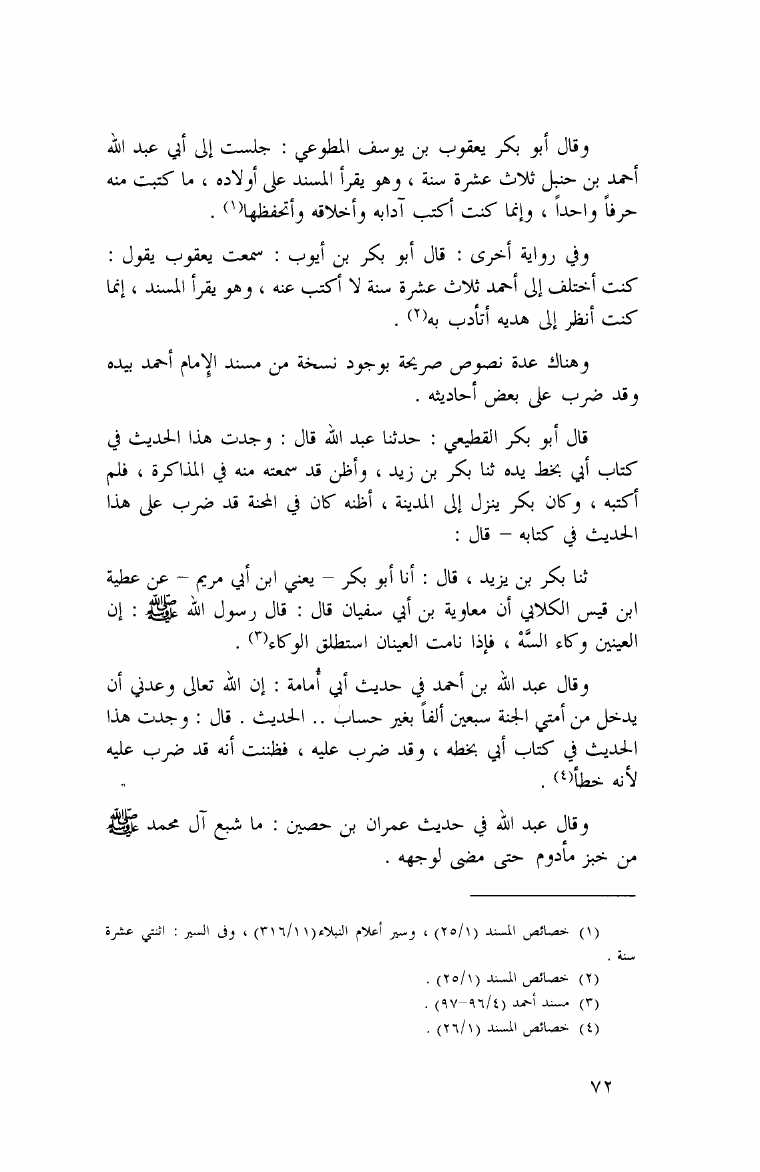 وقال أبو بكر يعقوب بن يوسف المطوعي : جلست إلى أبي عبد الله
أحمد بن حنبل ثلاث عشرة سنة ، وهو يقرأ المسند على أولاده ، ما كتبت منه
حرفاً واحداً ، وإنما كنت أكتب آدابه وأخلاقه وأتحفظها(١) .
وفي رواية أخرى : قال أبو بكر بن أيوب : سمعت يعقوب يقول :
كنت أختلف إلى أحمد ثلاث عشرة سنة لا أكتب عنه ، وهو يقرأ المسند ، إنما
كنت أنظر إلى هديه أتأدب به(٢) .
وهناك عدة نصوص صريحة بوجود نسخة من مسند الإمام أحمد بيده
وقد ضرب على بعض أحاديثه .
قال أبو بكر القطيعي : حدثنا عبد الله قال : وجدت هذا الحديث في
كتاب أبي بخط يده ثنا بكر بن زيد ، وأظن قد سمعته منه في المذاكرة ، فلم
أكتبه ، وكان بكر ينزل إلى المدينة ، أظنه كان في المحنة قد ضرب على هذا
الحديث في كتابه – قال :
ثنا بكر بن يزيد ، قال : أنا أبو بكر – يعني ابن أبي مريم – عن عطية
ابن قيس الكلابي أن معاوية بن أبي سفيان قال : قال رسول الله ﷺ : إن
العينين وكاء السَّهْ ، فإذا نامت العينان استطلق الوكاء(٣) .
وقال عبد الله بن أحمد في حديث أبي أُمامة : إن الله تعالى وعدني أن
يدخل من أمتي الجنة سبعين ألفاً بغير حساب .. الحديث . قال : وجدت هذا
الحديث في كتاب أبي بخطه ، وقد ضرب عليه ، فظننت أنه قد ضرب عليه
لأنه خطأ(٤) .
وقال عبد الله في حديث عمران بن حصين : ما شبع آل محمد ﷺ
من خبز مأدوم حتى مضى لوجهه .
(١) خصائص المسند (٢٥/١) ، وسير أعلام النبلاء(٣١٦/١١) ، وفى السير : اثنتي عشرة
سنة .
(٢) خصائص المسند (٢٥/١) .
(٣) مسند أحمد (٩٦/٤–٩٧) .
(٤) خصائص المسند (٢٦/١) .
٧٢